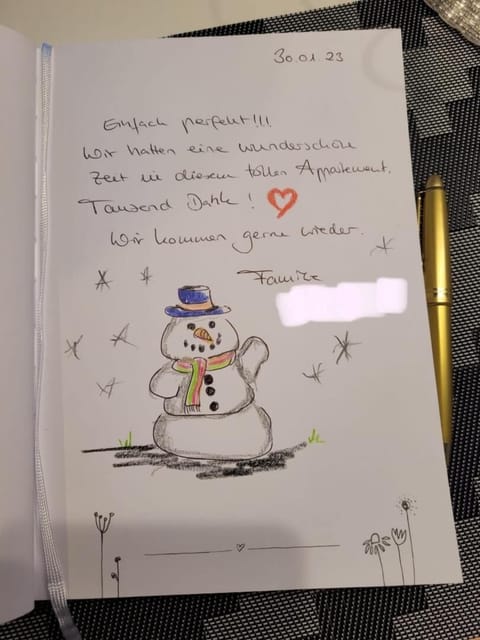 30.01.23
Einfach perfekt!!!
Wir hatten eine wunderschöne
Zeit in diesem tollen Appartement.
Tausend Dank!
Wir kommen gerne wieder.
Familie